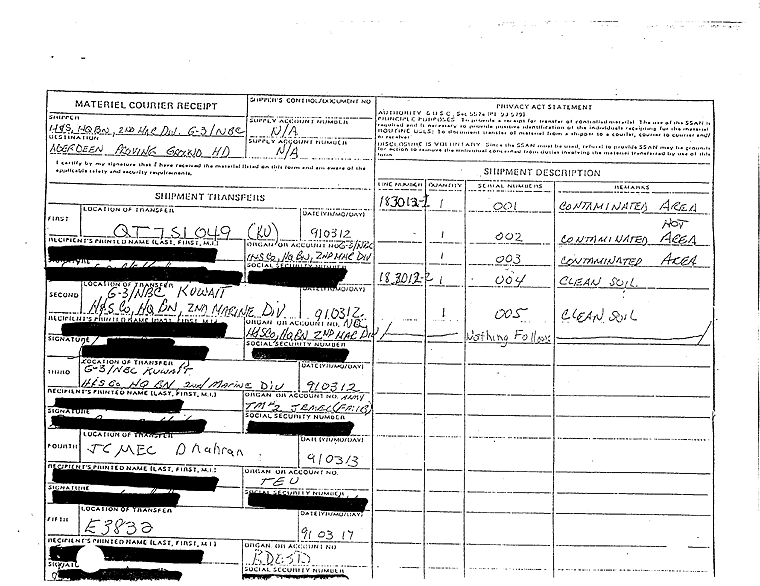 MATERIEL COURIER RECEIPT
SHIPPER'S CONTROL/DOCUMENT NO
PRIVACY ACT STATEMENT
AUTHORITY 5 U.S.C., Sec 552a (PL 93-579)
PRINCIPLE PURPOSES: To provide a reason for transfer of controlled material. The use of the SSAN is
required and is necessary to provide positive identification of the individuals receipting for the material
ROUTINE USES: To document transfer of material from a shipper to a courier, courier to courier and/
or receiver
DISCLOSURE IS VOLUNTARY. Since the SSAN must be used, refusal to provide SSAN may be grounds
for action to remove the individual concerned from duties involving the material transferred by use of this
form
SHIPPER
H&S, HQ BN, 2ND MAR DIV. G-3/NBC
SUPPLY ACCOUNT NUMBER
N/A
DESTINATION
ABERDEEN PROVING GROUND, MD
SUPPLY ACCOUNT NUMBER
N/A
I certify by my signature that I have received the material listed on this form and am aware of the
applicable safety and security requirements.
SHIPMENT TRANSFERS
SHIPMENT DESCRIPTION
LINE NUMBER QUANTITY SERIAL NUMBERS REMARKS
183012-1 1 001 CONTAMINATED AREA
1 002 CONTAMINATED HOT AREA
1 003 CONTAMINATED AREA
183012-2 1 004 CLEAN SOIL
1 005 CLEAN SOIL
Nothing Follows
FIRST
LOCATION OF TRANSFER
QT 751 049 (KU)
DATE (YR/MO/DAY)
910312
RECIPIENT'S PRINTED NAME (LAST, FIRST, M.I.)
ORGAN OR ACCOUNT NO G-3/NBC
H&S CO, HQ BN, 2ND MAR DIV
SOCIAL SECURITY NUMBER
SECOND
LOCATION OF TRANSFER
G-3/NBC KUWAIT
H&S Co, HQ BN, 2ND MARINE DIV
DATE (YR/MO/DAY)
910312
RECIPIENT'S PRINTED NAME (LAST, FIRST, M.I.)
ORGAN OR ACCOUNT NO. NBC
H&SCO, HQ BN 2ND MAR DIV
SIGNATURE
SOCIAL SECURITY NUMBER
THIRD
LOCATION OF TRANSFER
G-3/NBC KUWAIT
H&S Co, HQ BN 2nd MARINE DIV
DATE (YR/MO/DAY)
910312
RECIPIENT'S PRINTED NAME (LAST, FIRST, M.I.)
ORGAN OR ACCOUNT NO. ARMY
SIGNATURE
SOCIAL SECURITY NUMBER
FOURTH
LOCATION OF TRANSFER
JCMEC Dhahran
DATE (YR/MO/DAY)
910313
RECIPIENT'S PRINTED NAME (LAST, FIRST, M.I.)
ORGAN OR ACCOUNT NO.
TEU
SIGNATURE
SOCIAL SECURITY NUMBER
FIFTH
LOCATION OF TRANSFER
E3832
DATE (YR/MO/DAY)
91 03 17
RECIPIENT'S PRINTED NAME (LAST, FIRST, M.I.)
ORGAN OR ACCOUNT NO
SIGNATURE
SOCIAL SECURITY NUMBER